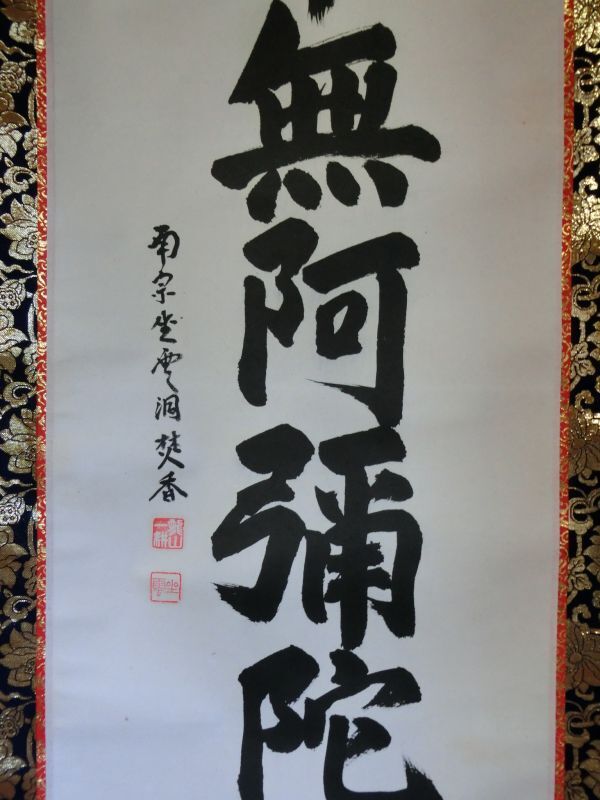 無阿彌陀
南宗坐雲洞焚香